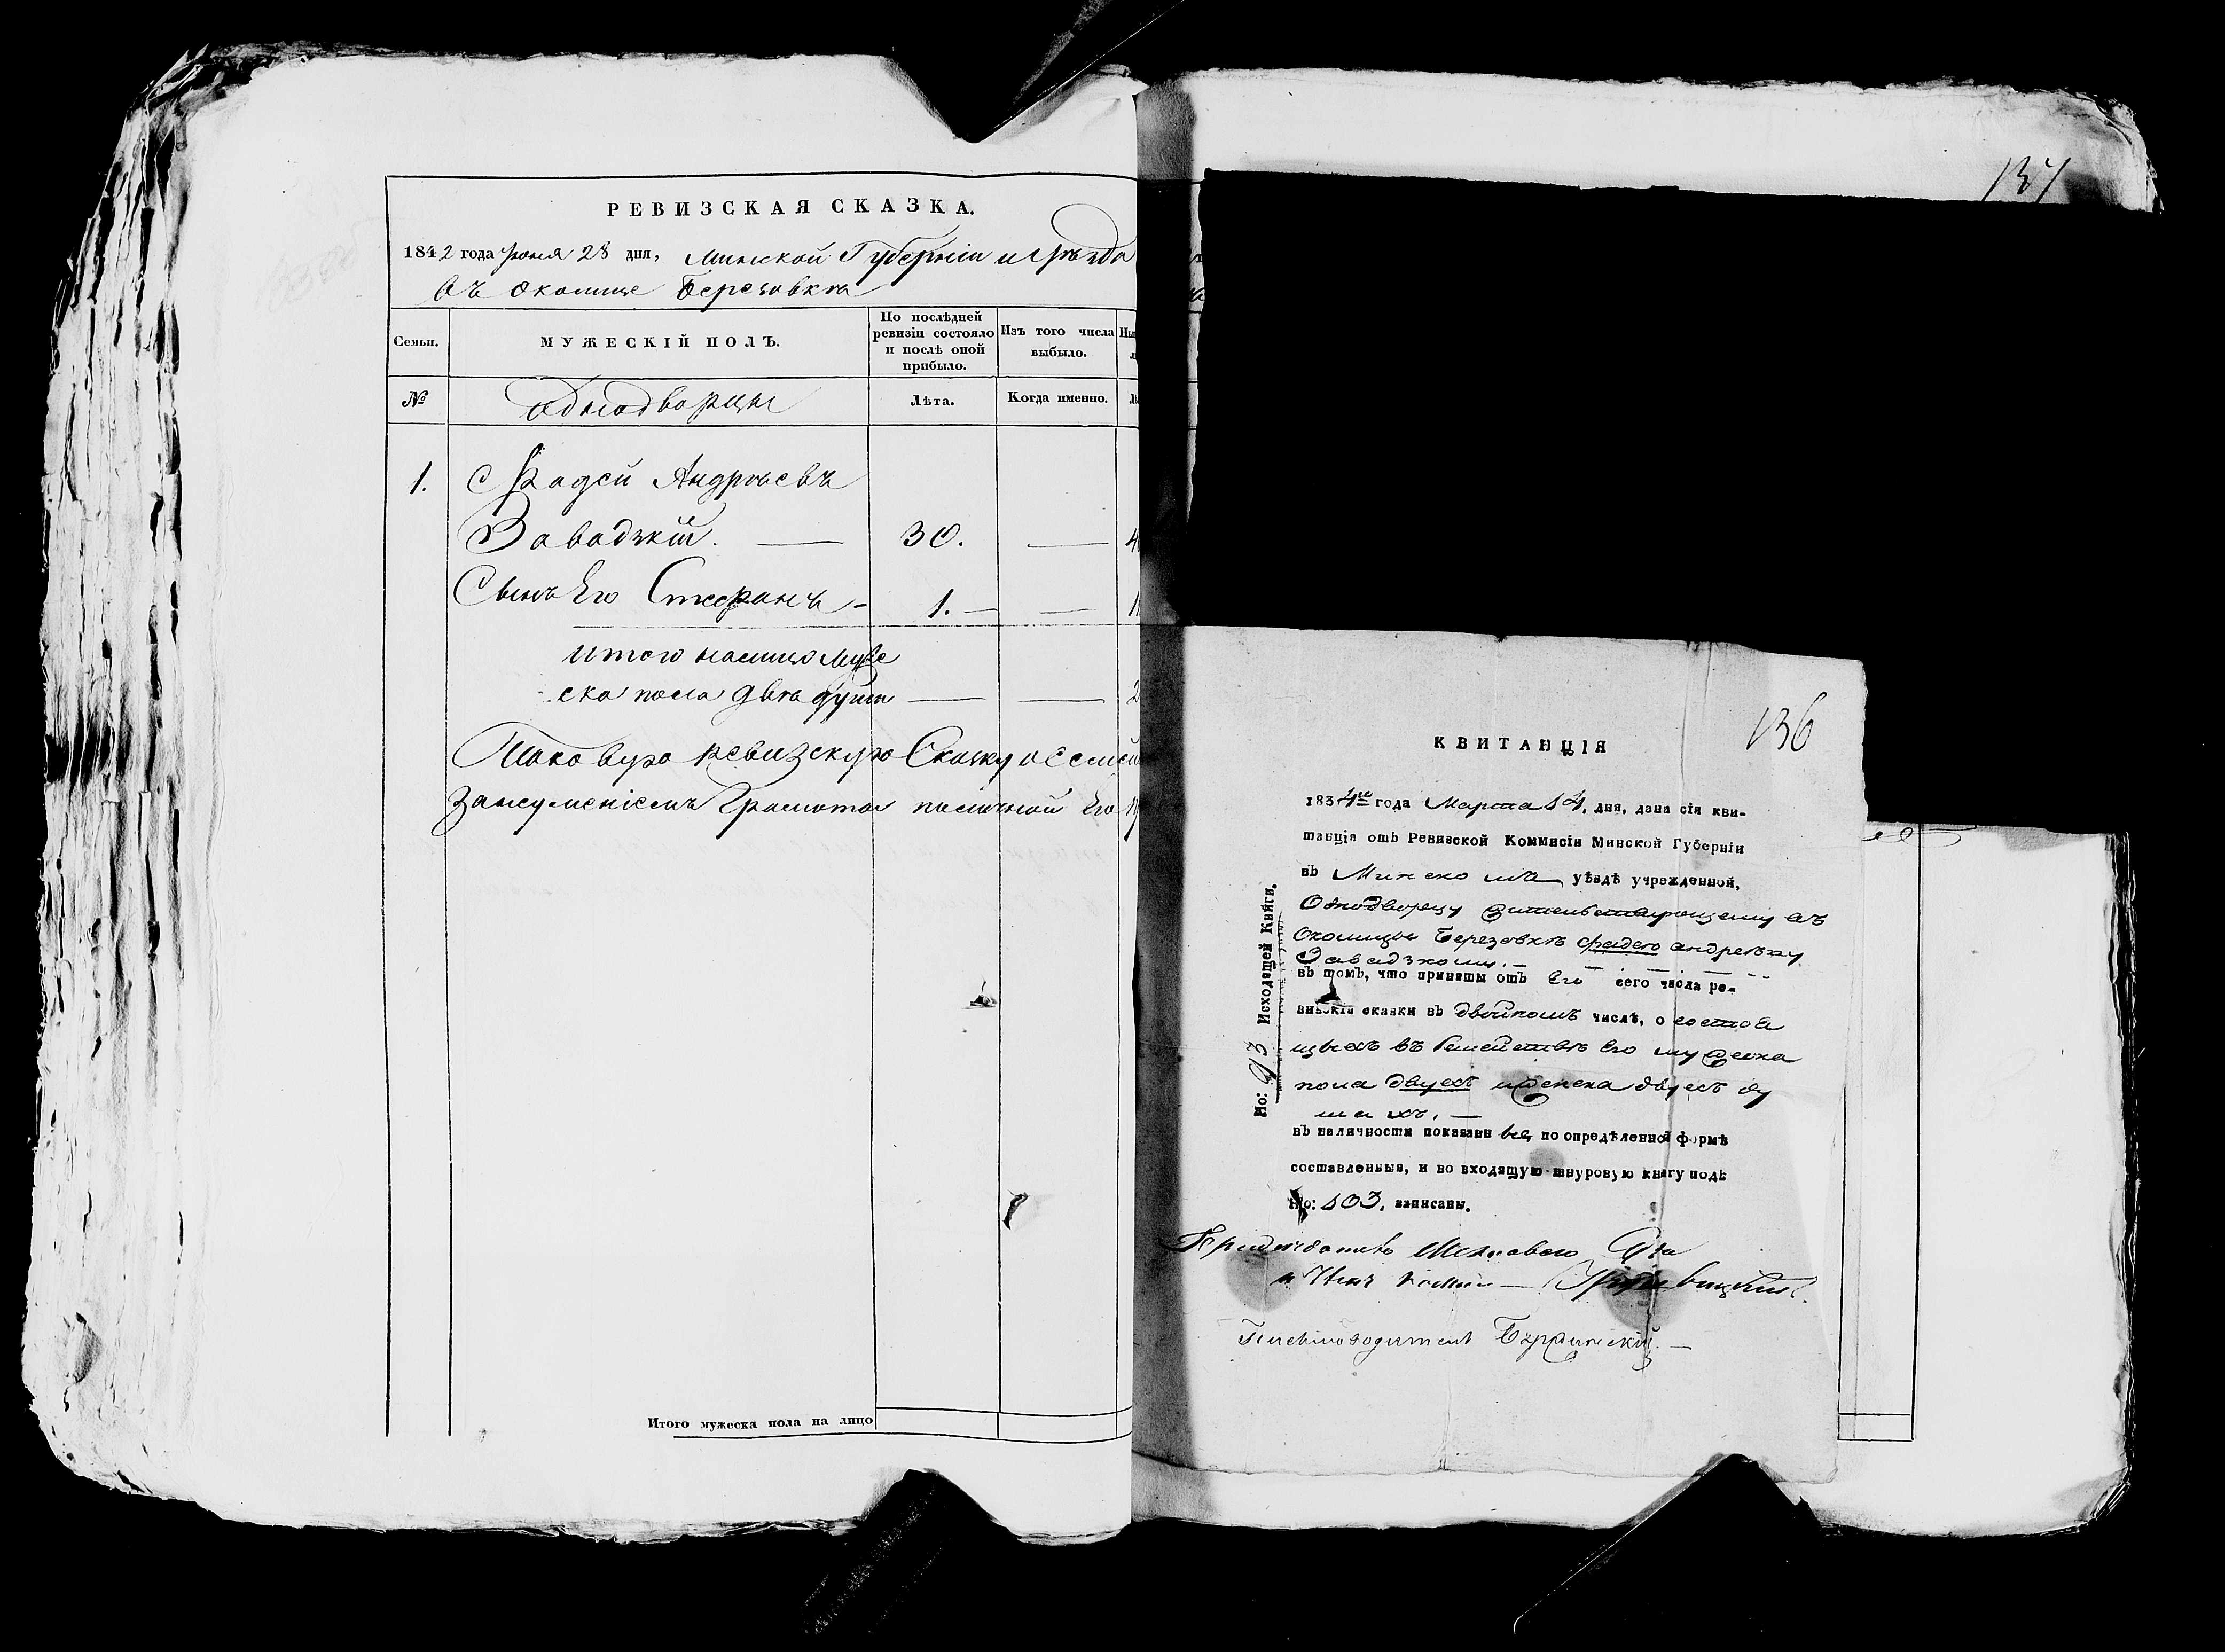 РЕВИЗСКАЯ СКАЗКА.
1842 года Июня 28 дня, Минской Губерніи и уѣзда
въ околице Березовка
Семьи.
МУЖЕСКІЙ ПОЛЪ.
По послѣдней
ревизіи состояло
и послѣ оной
прибыло.
Изъ того числа
выбыло.
№
однодворцы
Лѣта.
Когда именно.
1.
Фадей Андреевъ
Завадзкій. — 30. —
Сынъ Его Стефанъ - 1. — —
итого налицо муже
ска пола два души — —
Таковую ревизскую Сказку
Занеуменіемъ Грамоты Его
Итого мужеска пола на лицо
137
136
КВИТАНЦІЯ
1834го года Марта 14. дня, дана сія кви-
танція отъ Ревизской Коммисіи Минской Губерніи
въ Минскомъ уѣздѣ учрежденной,
Однодворцу Жительствующему въ
Околицы Березовкѣ Фадею андрееву
Завадзкому. —
въ томъ, что приняты отъ Его сего числа ре-
визскія сказки въ двойномъ числѣ, о состоя
щыхъ въ Семействѣ Его мужеска
пола двухъ и женска двухъ ду
шахъ. —
въ наличности показаны всѣ, по опредѣленной формѣ
составленныя, и во входящую шнуровую книгу подъ
No: 103. записаны.
No: 93 Исходящей Книги.
Письмоводитель